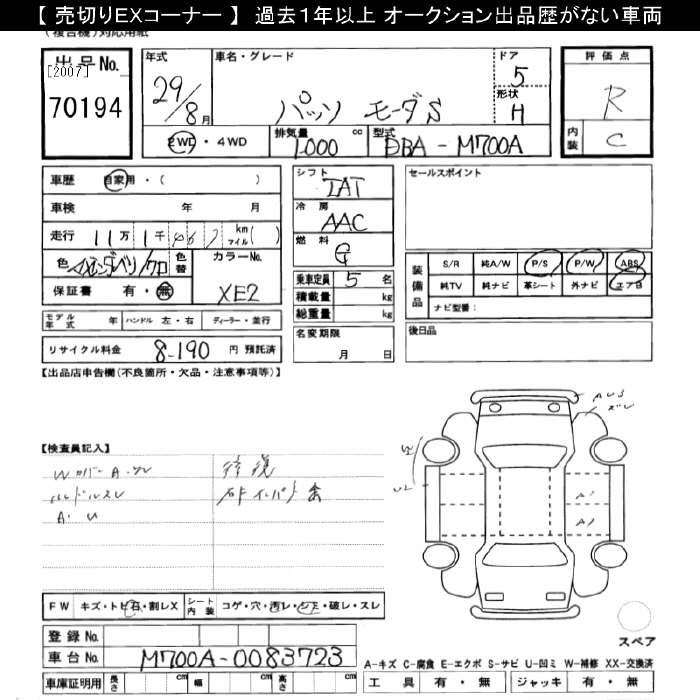 【 売切りEXコーナー 】 過去１年以上 オークション出品歴がない車両
(複合機)対応用紙
出品No.
[2007]
70194
年式
29/8月
車名・グレード
パッソ モーダS
ドア
5
形状
H
評価点
R
内装
C
2WD・4WD
排気量
1000 cc
型式
DBA-M700A
車歴 自家用・( )
車検 年 月
走行 11万1千 km マイル( )
色
色替
カラーNo.
XE2
保証書 有・無
モデル年式 年 ハンドル 左・右 ディーラー・並行
リサイクル料金 8190 円 預託済
シフト
IAT
冷房
AAC
燃料
G
乗車定員 5 名
積載量 kg
総重量 kg
名変期限
月 日
セールスポイント
装備品
S/R 純A/W P/S P/W ABS
純TV 純ナビ 革シート 外ナビ エアB
ナビ型番：
後日品
【出品店申告欄(不良箇所・欠品・注意事項等)】
【検査員記入】
Wカバー A・スレ
ハンドルスレ
A・U
修復
F W キズ・トビ石・割レX
シート内装 コゲ・穴・汚レ・シミ・破レ・スレ
登録No.
車台No. M700A-0083723
車庫証明用 長さ cm 幅 cm 高さ cm
スペア
A-キズ C-腐食 E-エクボ S-サビ U-凹ミ W-補修 XX-交換済
工具 有・無 ジャッキ 有・無